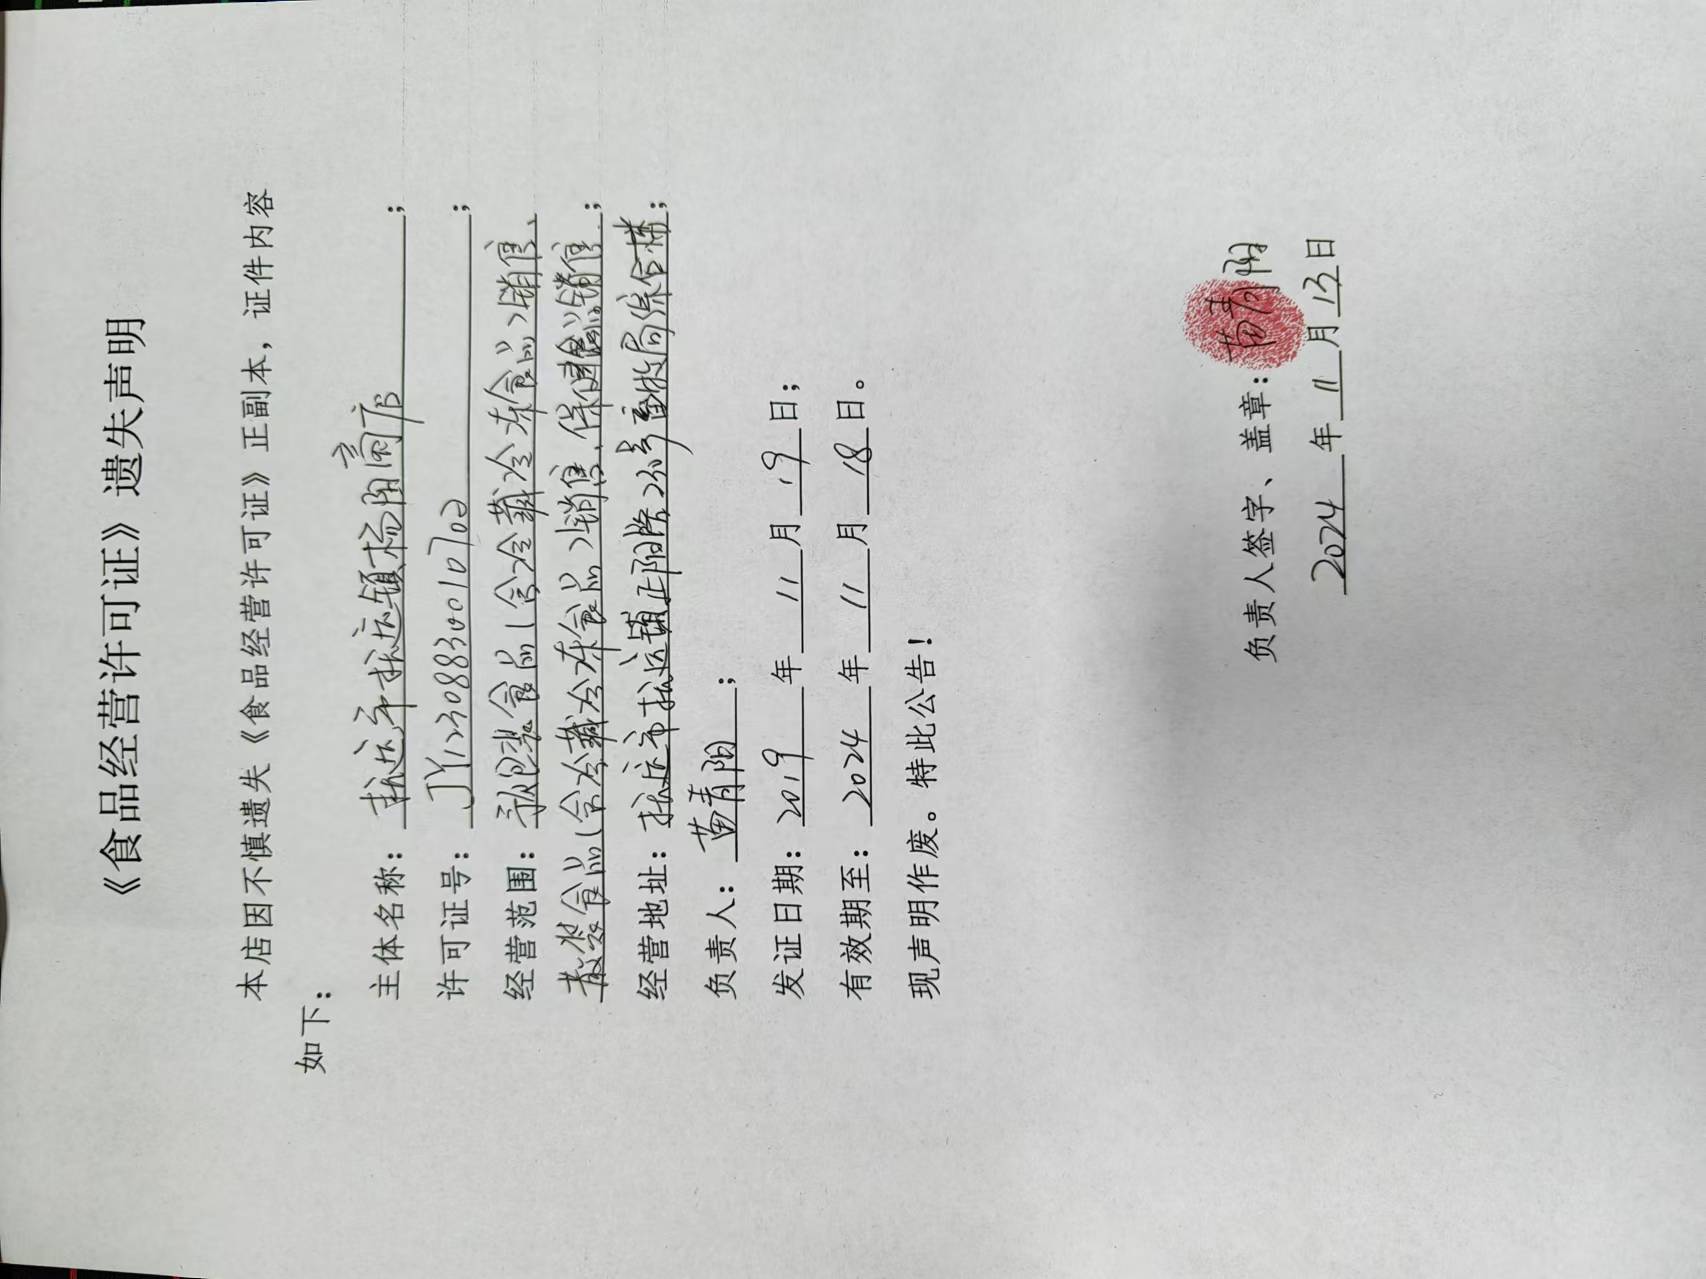 《食品经营许可证》遗失声明
本店因不慎遗失《食品经营许可证》正副本，证件内容
如下：
主体名称：抚远市抚远镇杨阳商店；
许可证号：JY12308830010702；
经营范围：预包装食品（含冷藏冷冻食品）销售、
散装食品（含冷藏冷冻食品）销售、保健食品销售、；
经营地址：抚远市抚远镇正阳路230号畜牧局综合楼；
负责人：苗青阳；
发证日期：2019年11月19日；
有效期至：2024年11月18日。
现声明作废。特此公告！
负责人签字、盖章：苗青阳
2024年11月13日